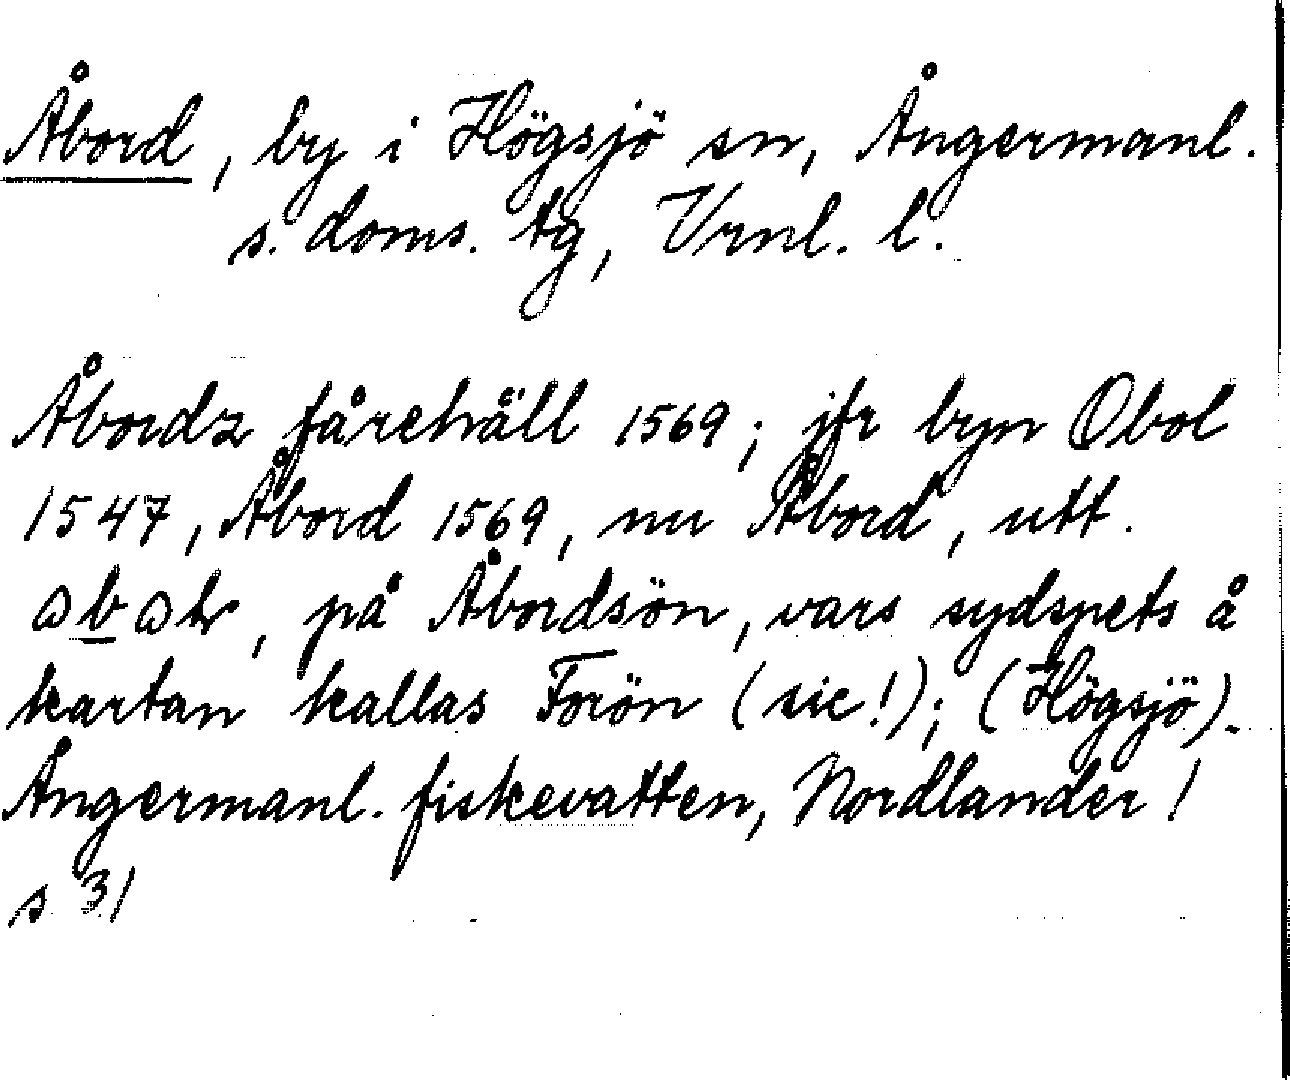 Åbord, by i Högsjö sn, Ångermanl.
s. doms. tg, Vrnl. l.
Åbordz fårehäll 1569; jfr byn Obol
1547, Åbord 1569, nu Åbord, utt.
på Åbordsön, vars sydspets å
kartan kallas Forön (sic!); (Högsjö).
Ångermanl. fiskevatten, Nordlander!
s 31